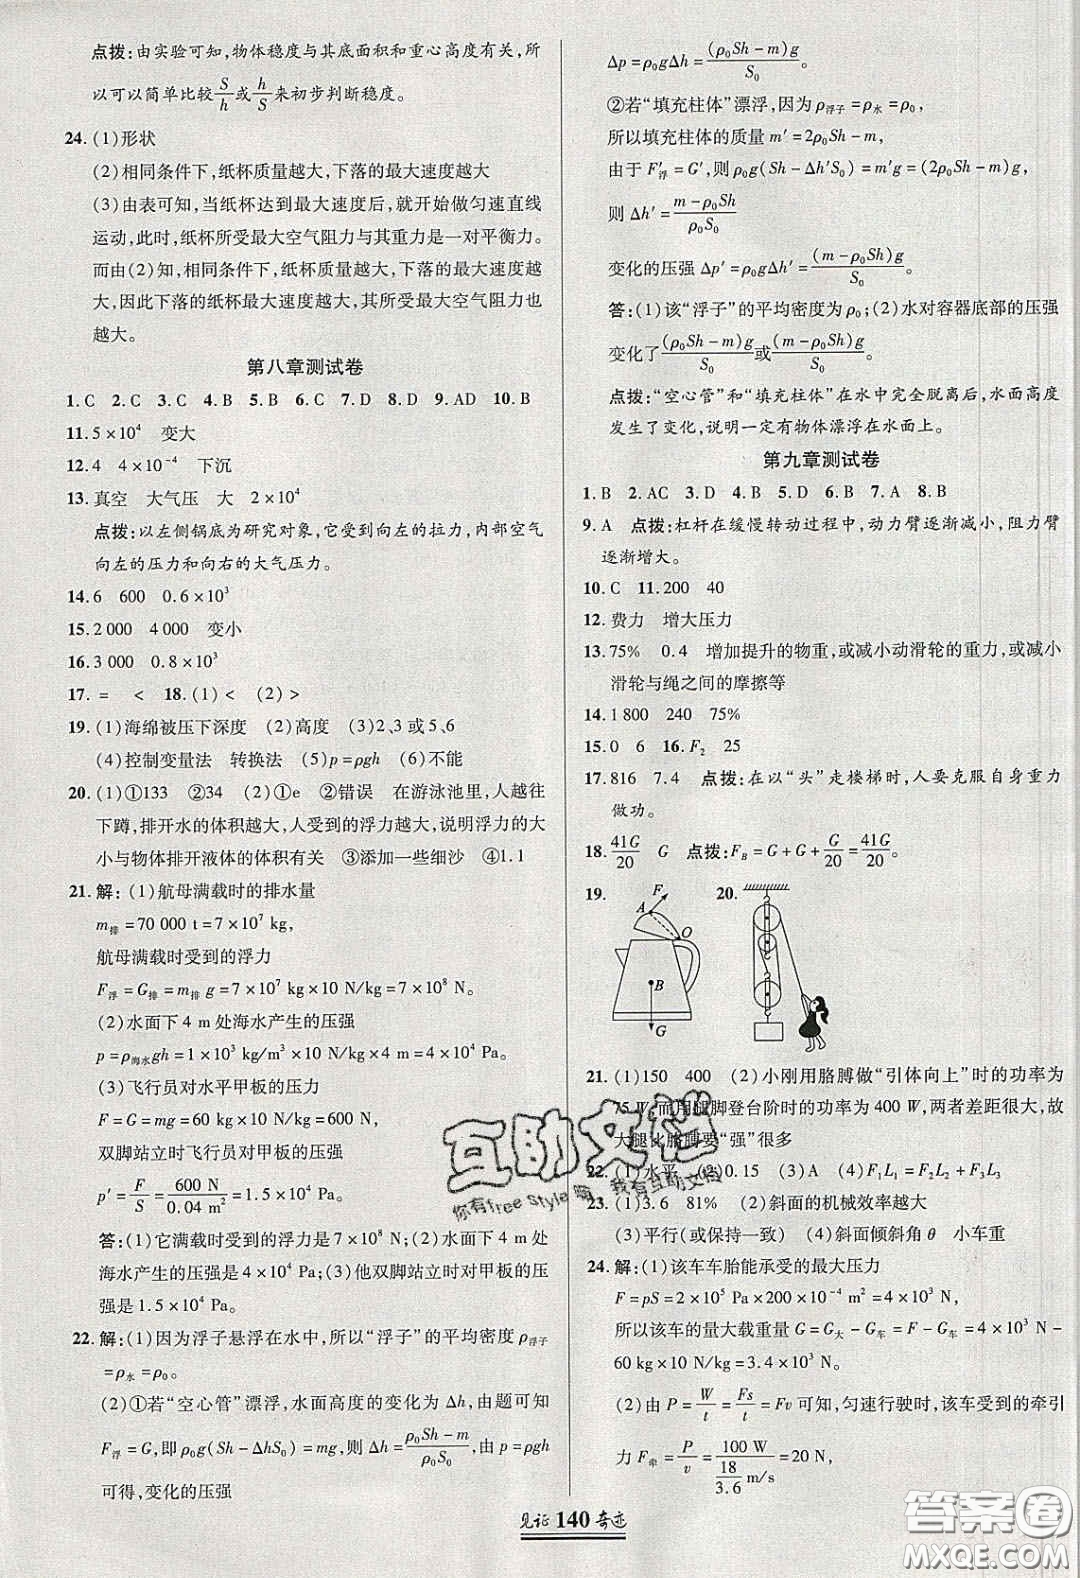 点拨:由实验可知,物体稳度与其底面积和重心高度有关,所
以可以简单比较S/h或h/S来初步判断稳度。
24.(1)形状
(2)相同条件下,纸杯质量越大,下落的最大速度越大
(3)由表可知,当纸杯达到最大速度后,就开始做匀速直线
运动,此时,纸杯所受最大空气阻力与其重力是一对平衡力。
而由(2)知,相同条件下,纸杯质量越大,下落的最大速度越
大,因此下落的纸杯最大速度越大,其所受最大空气阻力也
越大。
第八章测试卷
1.C 2.C 3.C 4.B 5.B 6.C 7.D 8.D 9.AD 10.B
11.5×10⁴ 变大
12.4 4×10⁻⁴ 下沉
13.真空 大气压 大 2×10⁴
点拨:以左侧锅底为研究对象,它受到向左的拉力,内部空气
向左的压力和向右的大气压力。
14.6 600 0.6×10³
15.2 000 4 000 变小
16.3 000 0.8×10³
17.= < 18.(1)< (2)>
19.(1)海绵被压下深度 (2)高度 (3)2、3或5、6
(4)控制变量法 转换法 (5)p=ρgh (6)不能
20.(1)①133 ②34 (2)①e ②错误 在游泳池里,人越往
下蹲,排开水的体积越大,人受到的浮力越大,说明浮力的大
小与物体排开液体的体积有关 ③添加一些细沙 ④1.1
21.解:(1)航母满载时的排水量
m排=70 000 t=7×10⁷ kg,
航母满载时受到的浮力
F浮=G排=m排g=7×10⁷ kg×10 N/kg=7×10⁸ N。
(2)水面下4 m处海水产生的压强
p=ρ海水gh=1×10³ kg/m³×10 N/kg×4 m=4×10⁴ Pa。
(3)飞行员对水平甲板的压力
F=G=mg=60 kg×10 N/kg=600 N,
双脚站立时飞行员对甲板的压强
p′=F/S=600 N/0.04 m²=1.5×10⁴ Pa。
答:(1)它满载时受到的浮力是7×10⁸ N;(2)水面下4 m处
海水产生的压强是4×10⁴ Pa;(3)他双脚站立时对甲板的压
强是1.5×10⁴ Pa。
22.解:(1)因为浮子悬浮在水中,所以“浮子”的平均密度ρ浮子
=ρ水=ρ₀。
(2)①若“空心管”漂浮,水面高度的变化为Δh,由题可知
F浮=G,即ρ₀g(Sh-ΔhS₀)=mg,则Δh=(ρ₀Sh-m)/(ρ₀S₀),由p=ρgh
可得,变化的压强
Δp=ρ₀gΔh=(ρ₀Sh-m)g/S₀。
②若“填充柱体”漂浮,因为ρ浮子=ρ水=ρ₀,
所以填充柱体的质量m′=2ρ₀Sh-m,
由于F′浮=G′,则ρ₀g(Sh-Δh′S₀)=m′g=(2ρ₀Sh-m)g,
则Δh′=(m-ρ₀Sh)/(ρ₀S₀)
变化的压强Δp′=ρ₀gΔh′=(m-ρ₀Sh)g/S₀。
答:(1)该“浮子”的平均密度为ρ₀;(2)水对容器底部的压强
变化了(ρ₀Sh-m)g/S₀或(m-ρ₀Sh)g/S₀。
点拨:“空心管”和“填充柱体”在水中完全脱离后,水面高度
发生了变化,说明一定有物体漂浮在水面上。
第九章测试卷
1.B 2.AC 3.D 4.B 5.D 6.B 7.A 8.B
9.A 点拨:杠杆在缓慢转动过程中,动力臂逐渐减小,阻力臂
逐渐增大。
10.C 11.200 40
12.费力 增大压力
13.75% 0.4 增加提升的物重,或减小动滑轮的重力,或减小
滑轮与绳之间的摩擦等
14.1 800 240 75%
15.0 6 16.F₂ 25
17.816 7.4 点拨:在以“头”走楼梯时,人要克服自身重力
做功。
18.41G/20 G 点拨:F_B=G+G+G/20=41G/20。
19. 20.
F
A
O
B
G
21.(1)150 400 (2)小刚用胳膊做“引体向上”时的功率为
75 W,而用腿脚登台阶时的功率为400 W,两者差距很大,故
大腿比胳膊要“强”很多
22.(1)水平 (2)0.15 (3)A (4)F₁L₁=F₂L₂+F₃L₃
23.(1)3.6 81% (2)斜面的机械效率越大
(3)平行(或保持一致) (4)斜面倾斜角θ 小车重
24.解:(1)该车车胎能承受的最大压力
F=pS=2×10⁵ Pa×200×10⁻⁴ m²=4×10³ N,
所以该车的最大载重量G=G大-G车=F-G车=4×10³ N-
60 kg×10 N/kg=3.4×10³ N。
(2)由P=W/t=Fs/t=Fv可知,匀速行驶时,该车受到的牵引
力F牵=P/v=100 W/(18/3.6 m/s)=20 N,
见证140奇迹
互助文档
你有free style嘛 我有互助文档
答案圈
MXQE.COM